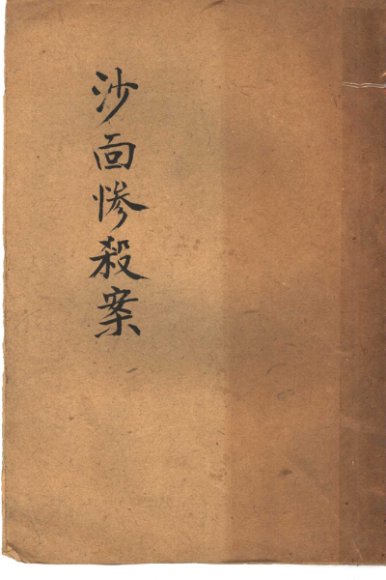 沙面惨殺案